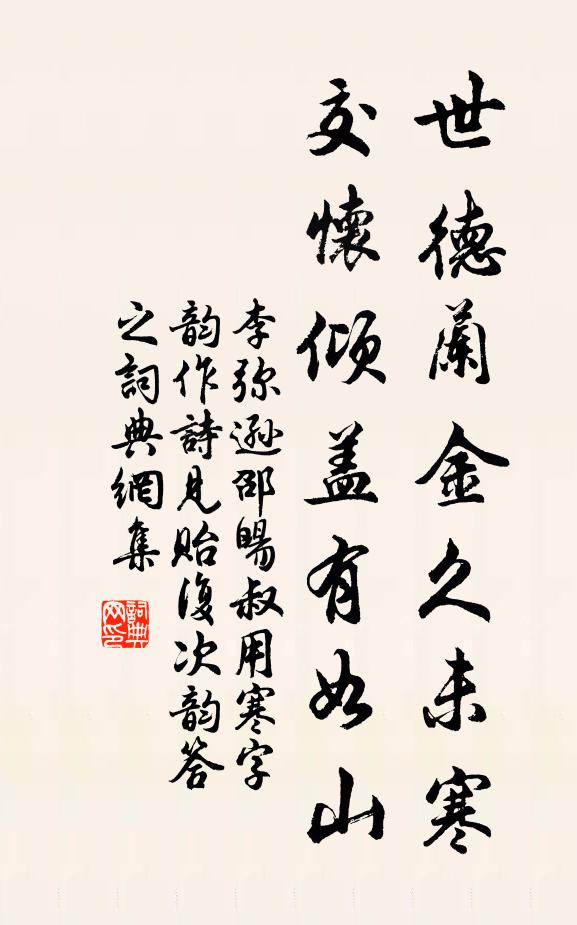 世德蘭金久未寒
交懷傾盖有如山
李弥遜邵暘叔用寒字
韵作詩見貽復次韵答
之詞典網集
詞典
网印